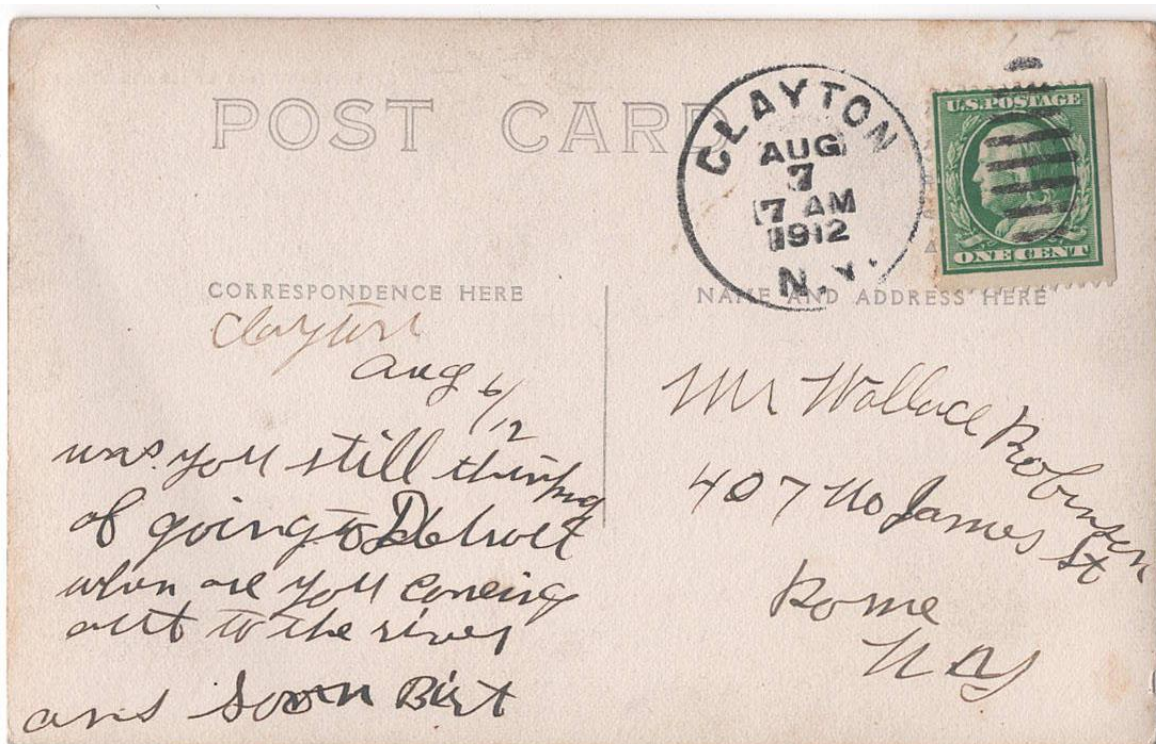 POST CARD
CLAYTON
AUG
7
7 AM
1912
N.Y.
U.S. POSTAGE
ONE CENT
CORRESPONDENCE HERE
Clayton
Aug 6/12
was you still thinking
of going to Detroit
when are you coming
out to the river
ans soon Birt
NAME AND ADDRESS HERE
Mr Wallace Robinson
407 No James St
Rome
N Y